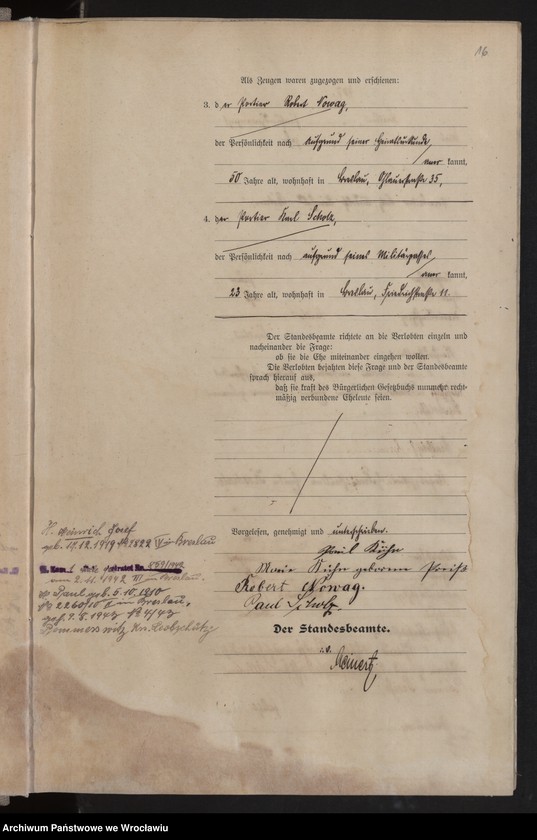 16
Als Zeugen waren zugezogen und erschienen:
3. der Portier Robert Nowag,
der Persönlichkeit nach aufgrund seiner
kannt,
50 Jahre alt, wohnhaft in Breslau, Ohlauerstraße 35,
4. der Portier Karl Scholz,
der Persönlichkeit nach aufgrund seines Militärpasses
kannt,
23 Jahre alt, wohnhaft in Breslau, Friedrichstraße 11.
Der Standesbeamte richtete an die Verlobten einzeln und
nacheinander die Frage:
ob sie die Ehe miteinander eingehen wollen.
Die Verlobten bejahten diese Frage und der Standesbeamte
sprach hierauf aus,
daß sie kraft des Bürgerlichen Gesetzbuchs nunmehr recht-
mäßig verbundene Eheleute seien.
Vorgelesen, genehmigt und unterschrieben.
Kühn
Marie Kühn geborene
Robert Nowag.
Scholz
Der Standesbeamte.
i. V.
Meinert
Heinrich Josef
geb. 14.12.1919 1822 Breslau
859/1942
2.11.1942 III Breslau.
Paul geb. 5.10.1910
2260/10 II in Breslau,
gef. 9.8.1943 4/43
Pommerswitz, Kr. Leobschütz
Archiwum Państwowe we Wrocławiu